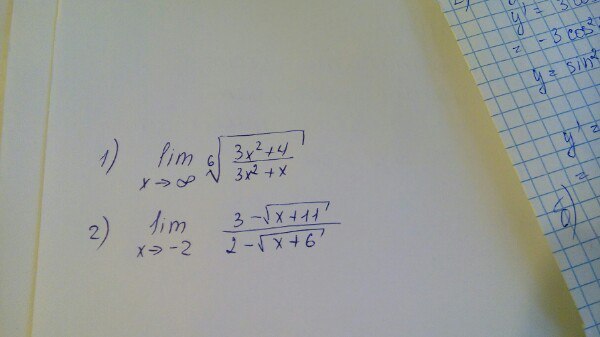 1) lim x→∞ ⁶√((3x²+4)/(3x²+x))
2) lim x→-2 (3-√(x+11))/(2-√(x+6))
y' =
= -3cos²
y = sin²
y' =
=
8)